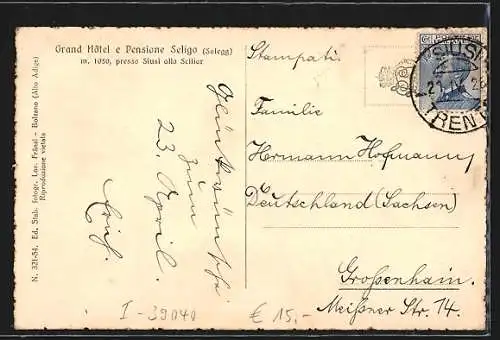 Grand Hôtel e Pensione Seligo (Salegg)
m. 1050, presso Siusi allo Sciliar
Glückwünsche
zum
23. April.
N. 321-54. Ed. Stab. fotogr. Lor. Fränzl - Bolzano (Alto Adige)
Riproduzione vietata
Stampati
Familie
Hermann Hofmann,
Deutschland (Sachsen)
Großenhain.
Meißner Str. 14.
SIUSI
TRENTO
I-39040
€ 15.-